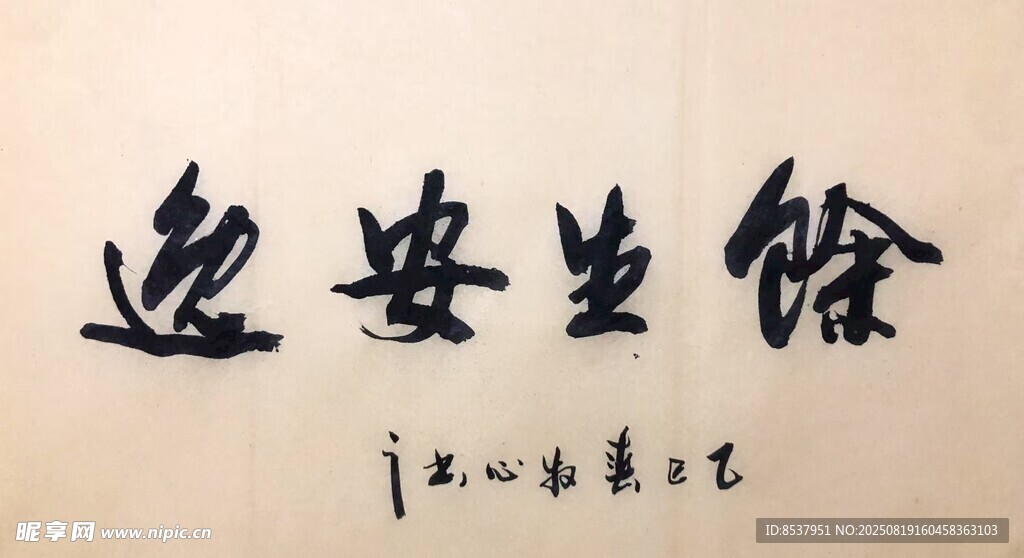 餘生安逸
乙巳春牧心书
昵享网 www.nipic.cn
ID:8537951 NO:20250819160458363103